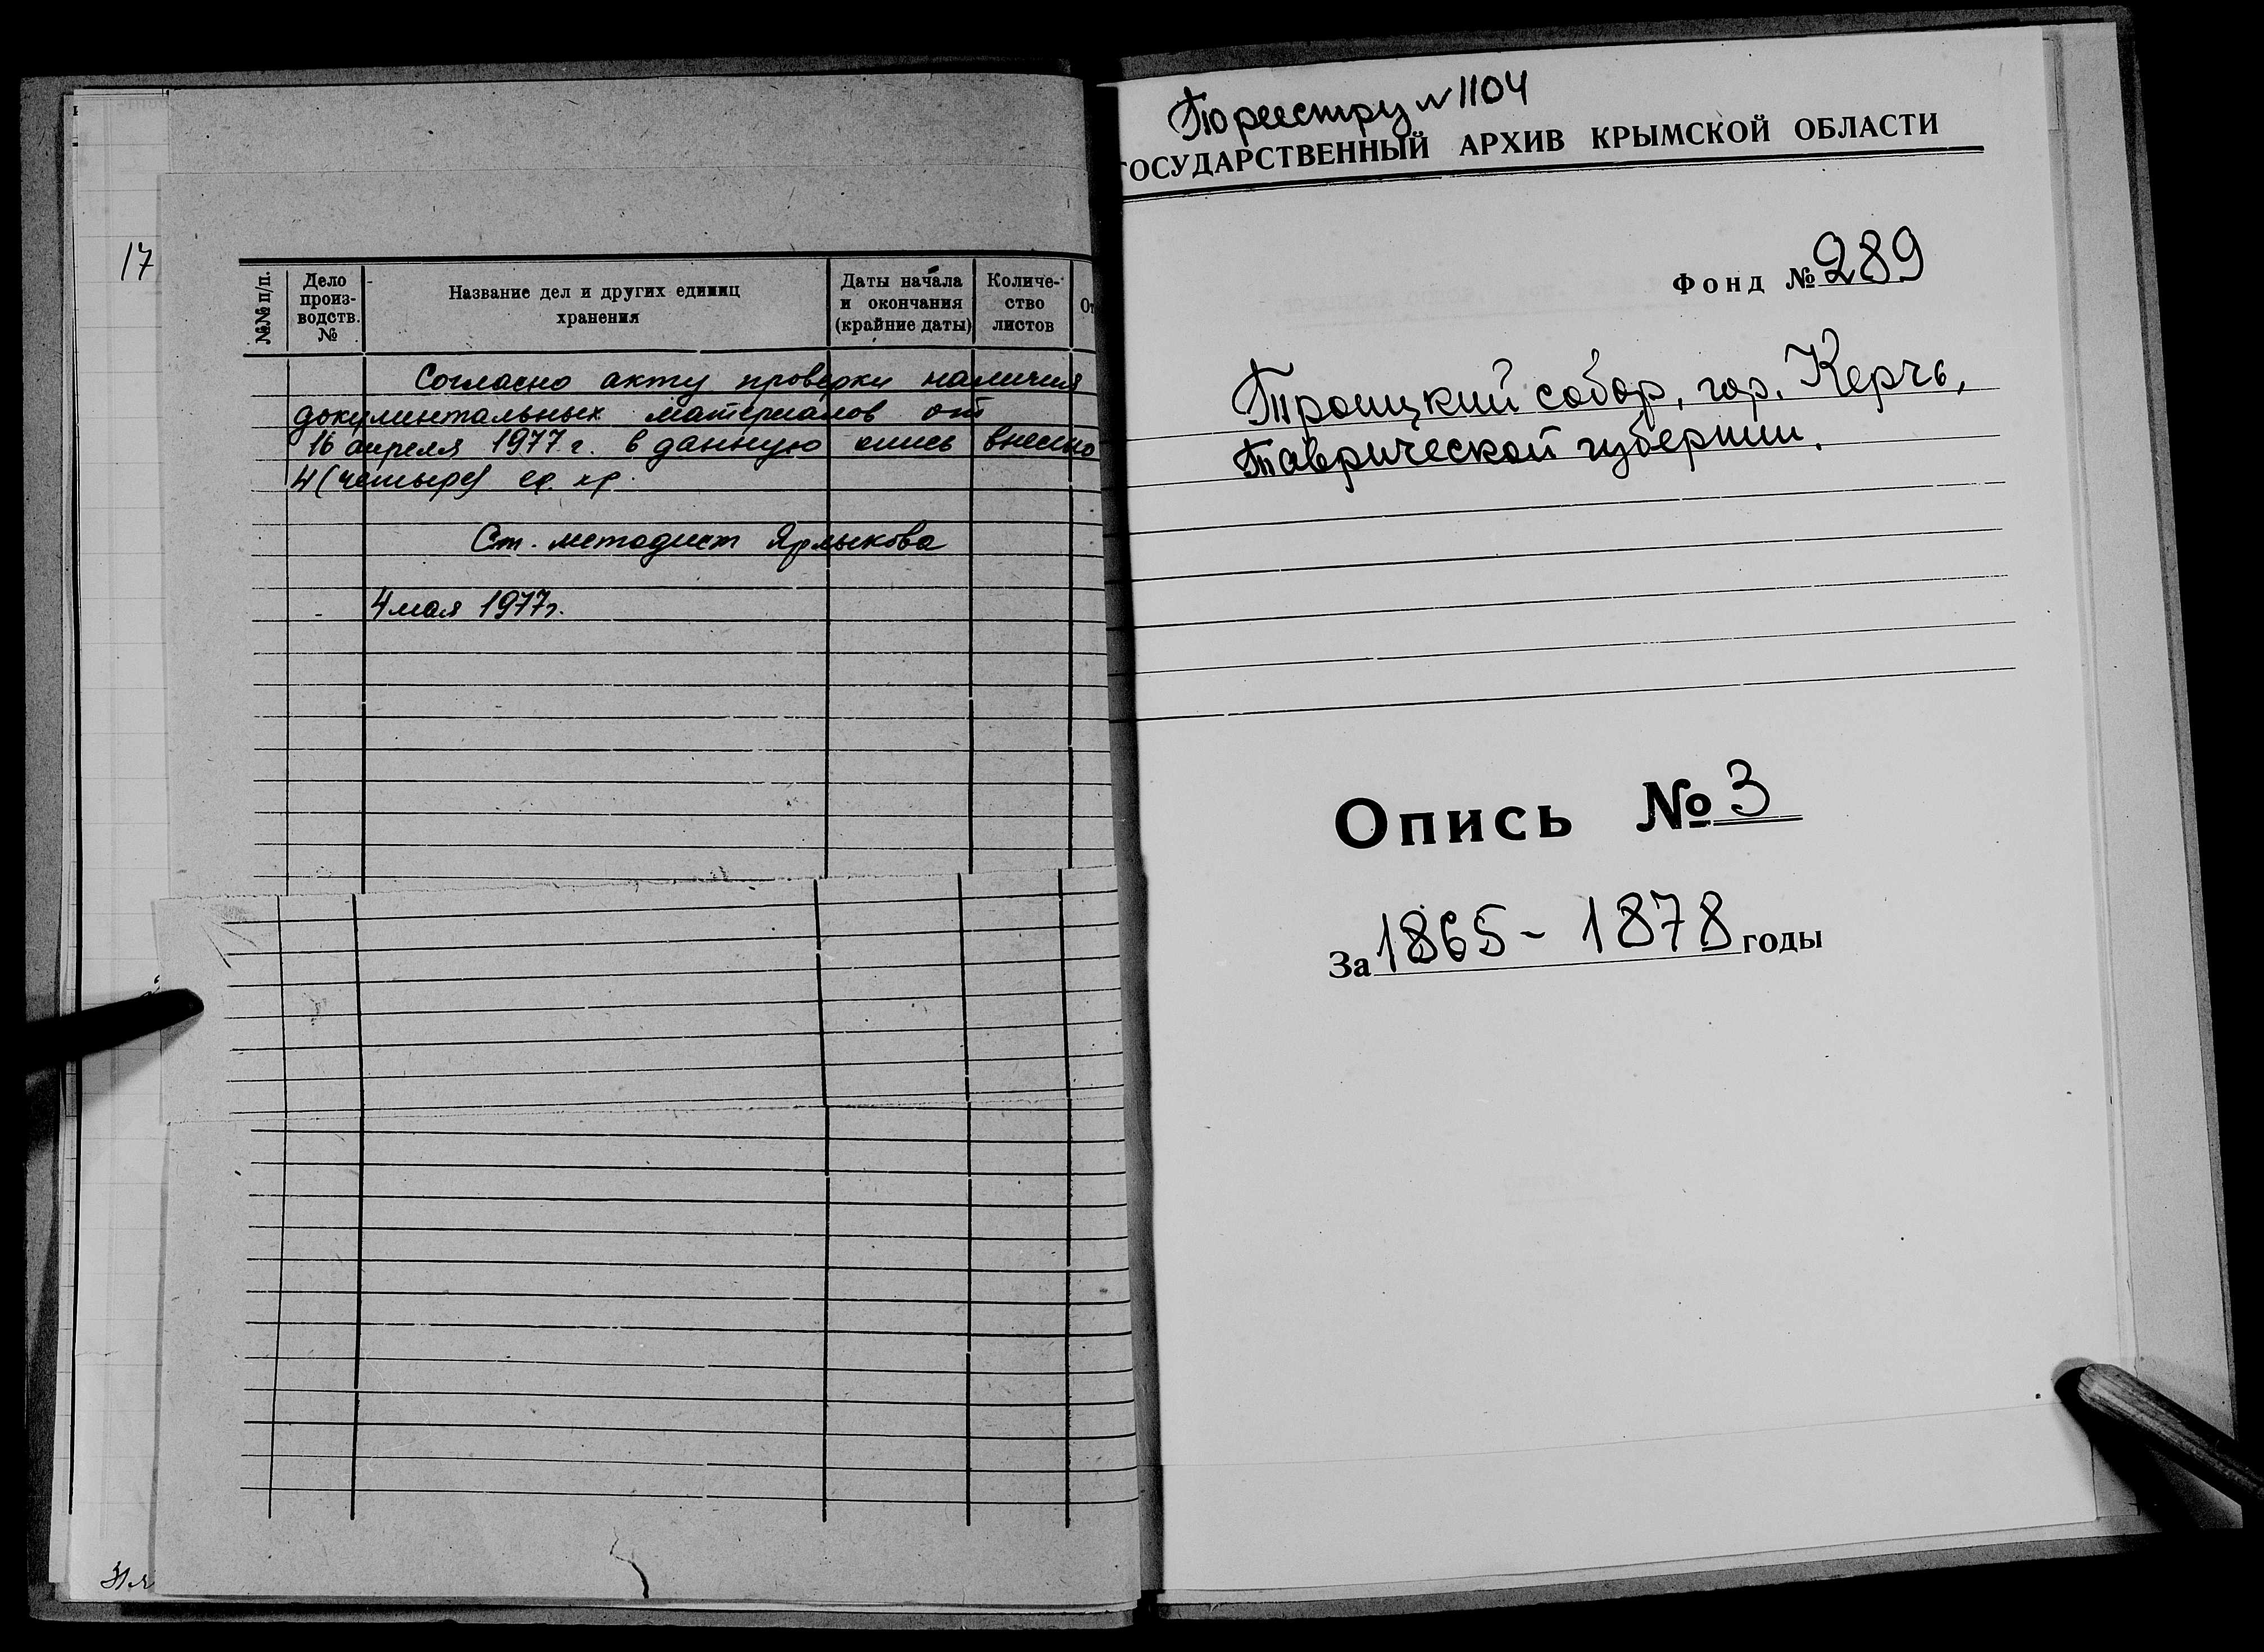 17
№№ п/п.
Дело
произ-
водств.
№
Название дел и других единиц
хранения
Даты начала
и окончания
(крайние даты)
Количе-
ство
листов
От
Согласно акту проверки наличия
документальных материалов от
16 апреля 1977 г. в данную опись внесено
4 (четыре) ед. хр.
Ст. методист Ярлыкова
4 мая 1977г.
По реестру № 1104
ГОСУДАРСТВЕННЫЙ АРХИВ КРЫМСКОЙ ОБЛАСТИ
Фонд № 289
Троицкий собор, гор. Керчь,
Таврической губернии.
Опись № 3
За 1865 - 1878 годы